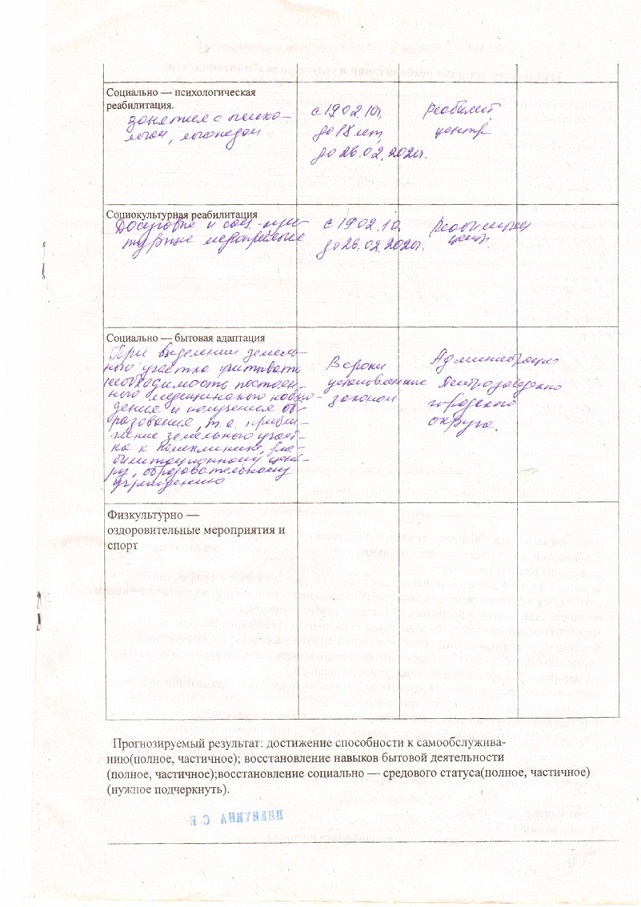 Социально — психологическая
реабилитация.
занятия с психо-
логом, логопедом
с 19.02.10г.
до 18 лет,
до 26.02.2020г.
Реабилит.
центр
Социокультурная реабилитация
Досуговые и соц.-куль-
турные мероприятия
с 19.02.10.
до 26.02.2020г.
Реабилитац.
центр.
Социально — бытовая адаптация
При выделении земель-
ного участка учитывать
необходимость постоян-
ного медицинского наблю-
дения и получения об-
разования, т.е. прибли-
жение земельного участ-
ка к поликлинике, реа-
билитационному цент-
ру, образовательному
учреждению
В сроки
установленные
законом
Администрация
Петрозаводского
городского
округа.
Физкультурно —
оздоровительные мероприятия и
спорт
Прогнозируемый результат: достижение способности к самообслужива-
нию(полное, частичное); восстановление навыков бытовой деятельности
(полное, частичное);восстановление социально — средового статуса(полное, частичное)
(нужное подчеркнуть).